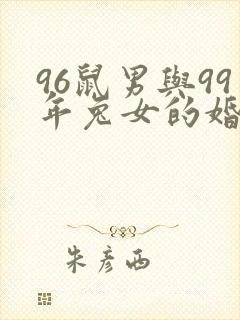 96鼠男與99
年兔女的婚
朱彥西